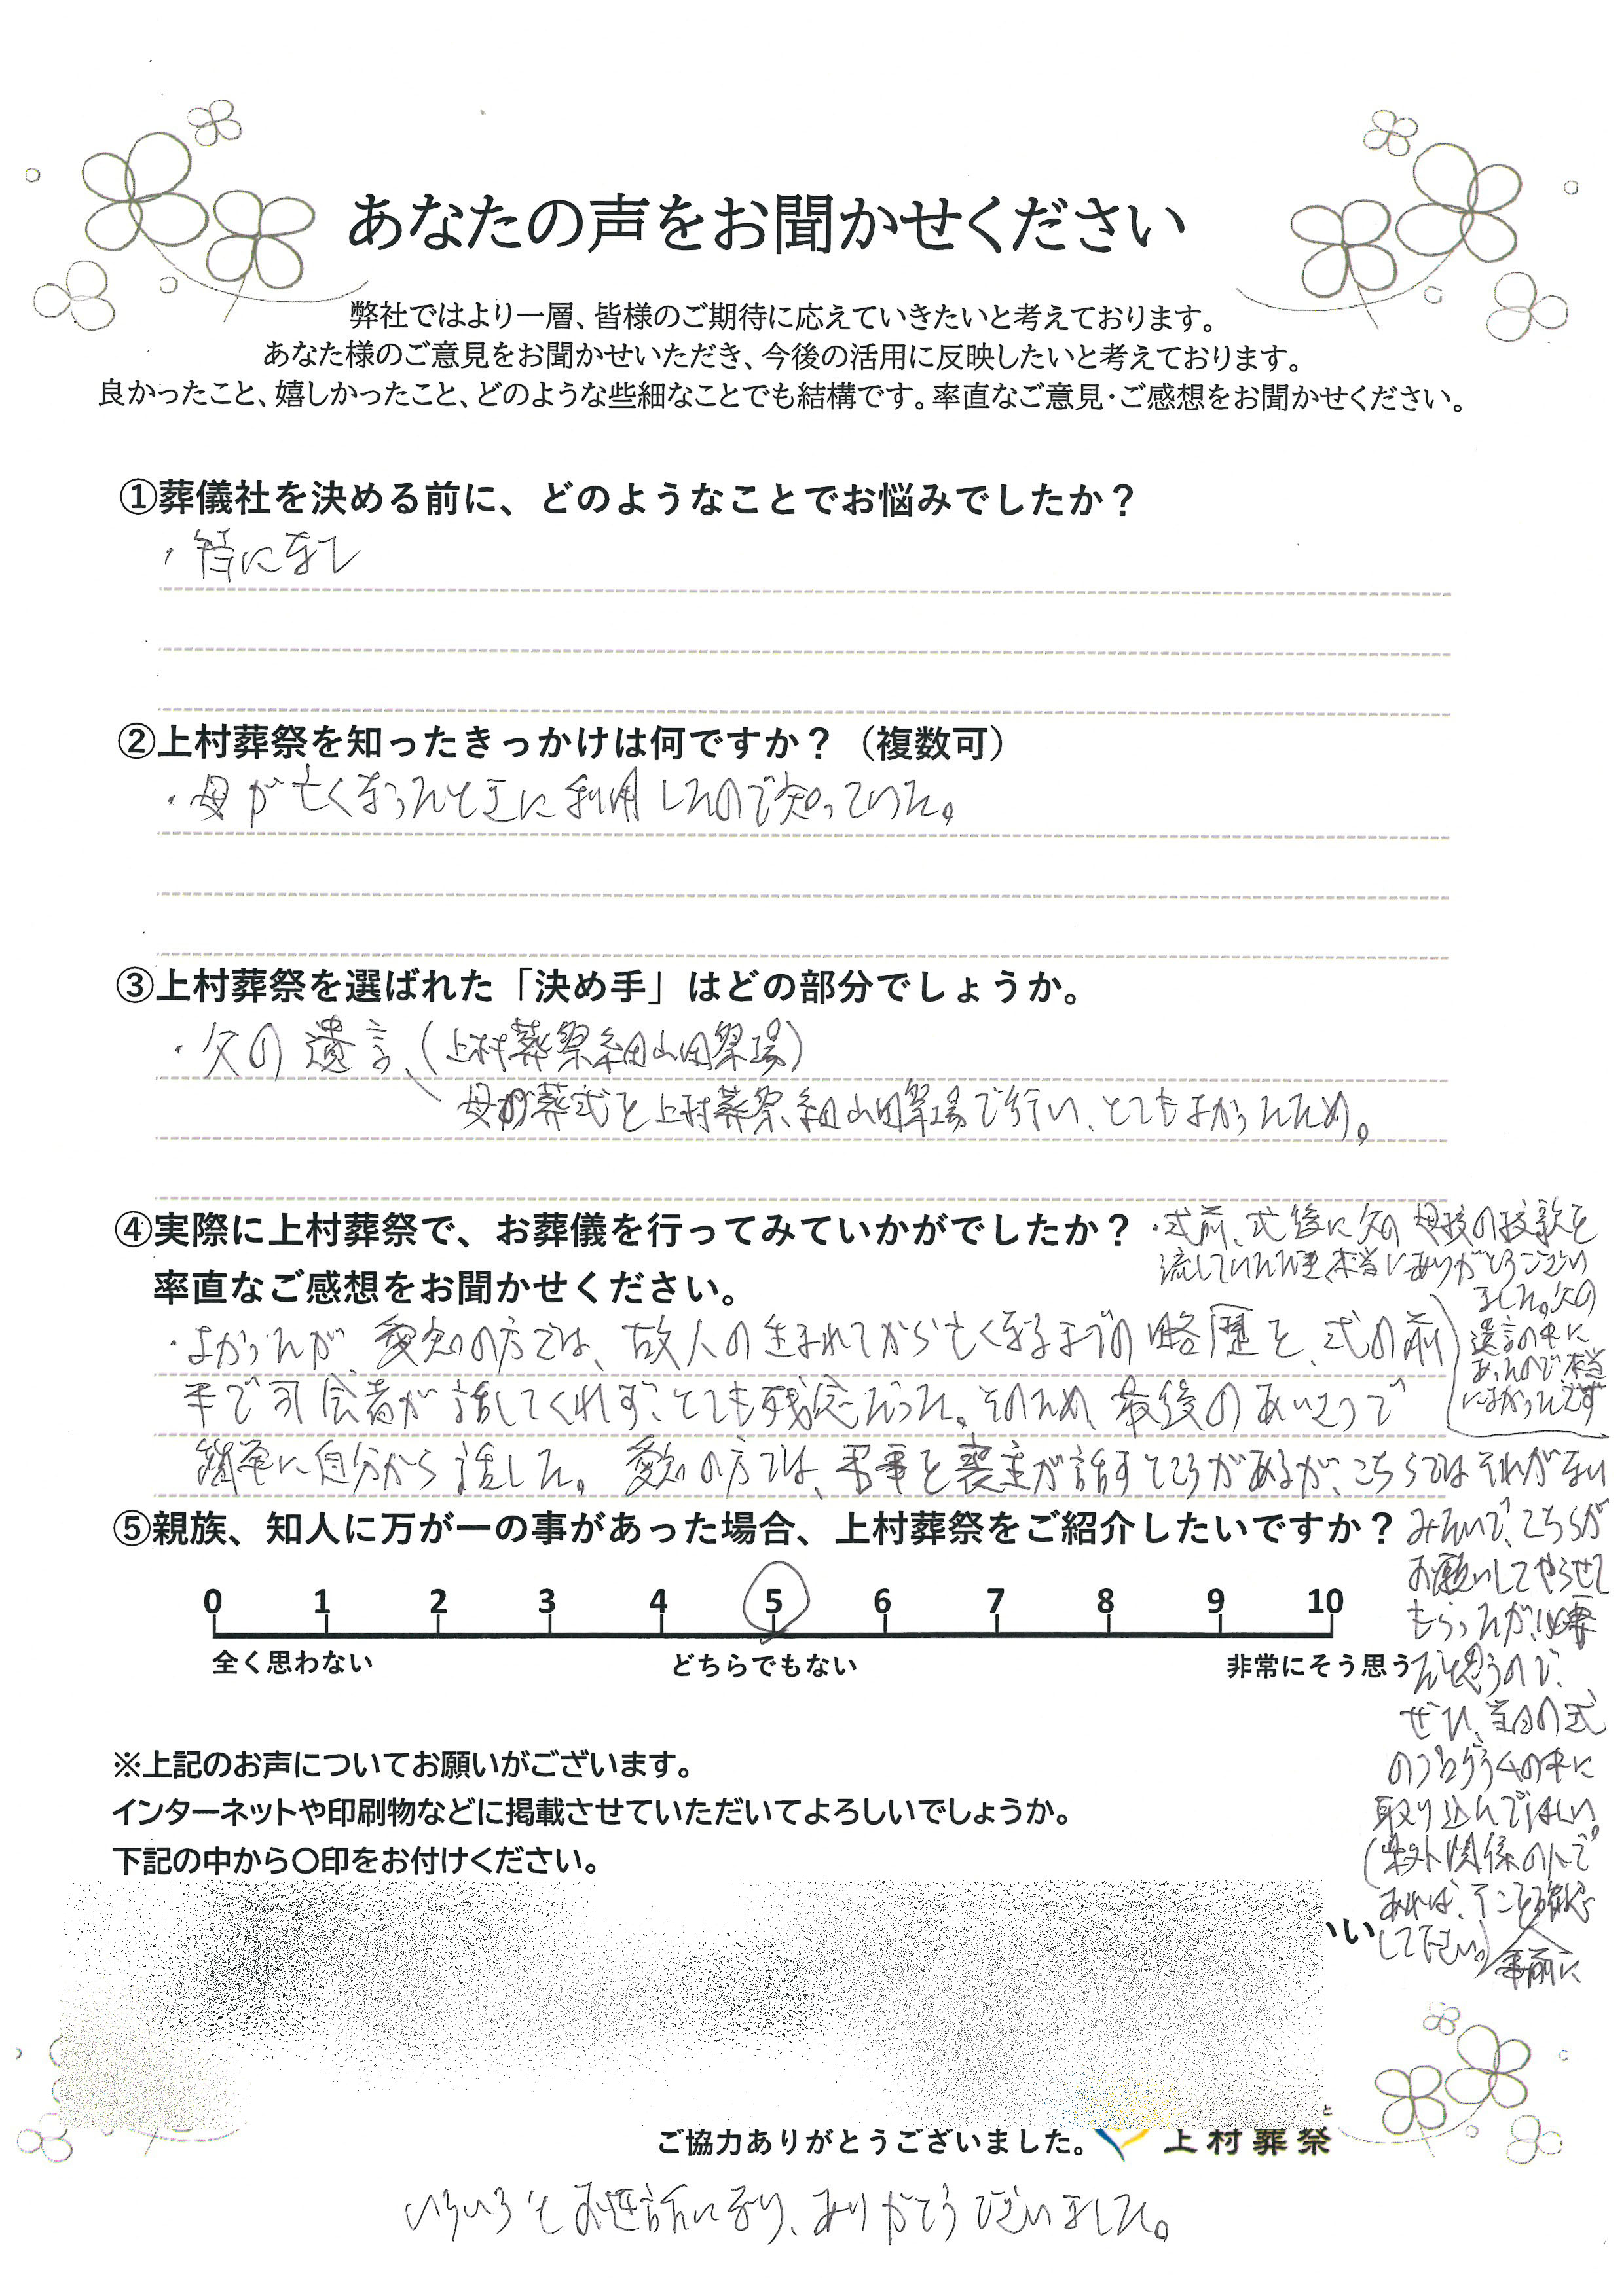 あなたの声をお聞かせください
弊社ではより一層、皆様のご期待に応えていきたいと考えております。
あなた様のご意見をお聞かせいただき、今後の活用に反映したいと考えております。
良かったこと、嬉しかったこと、どのような些細なことでも結構です。率直なご意見・ご感想をお聞かせください。
①葬儀社を決める前に、どのようなことでお悩みでしたか？
・特になし
②上村葬祭を知ったきっかけは何ですか？（複数可）
・母が亡くなったときに利用したので知っていた。
③上村葬祭を選ばれた「決め手」はどの部分でしょうか。
・父の遺言、(上村葬祭細山田祭場)
母の葬式を上村葬祭、細山田祭場で行い、とてもよかったため。
④実際に上村葬祭で、お葬儀を行ってみていかがでしたか？
率直なご感想をお聞かせください。
・よかったが、愛知の方では、故人の生まれてから亡くなるまでの略歴を、式の前
半で司会者が話してくれず、とても残念だった。そのため、最後のあいさつで
簡単に自分から話した。愛知の方では、弔事を喪主が話すところがあるが、こちらではそれがない
みたいで、こちらが
お願いしてやらせて
もらったが、必要
だと思うので、
ぜひ、当日の式
のプログラムの中に
取り込んでほしい。
関係の人で
あれば、そこを確認
して下さい。)
事前に
・式前、式後に父の母校の校歌を
流していただき、本当にありがとうござい
ました。父の
遺言の中に
あったので本当
によかったです
⑤親族、知人に万が一の事があった場合、上村葬祭をご紹介したいですか？
0 1 2 3 4 5 6 7 8 9 10
全く思わない どちらでもない 非常にそう思う
※上記のお声についてお願いがございます。
インターネットや印刷物などに掲載させていただいてよろしいでしょうか。
下記の中から〇印をお付けください。
い
ご協力ありがとうございました。
上村葬祭
いろいろとお世話になり、ありがとうございました。